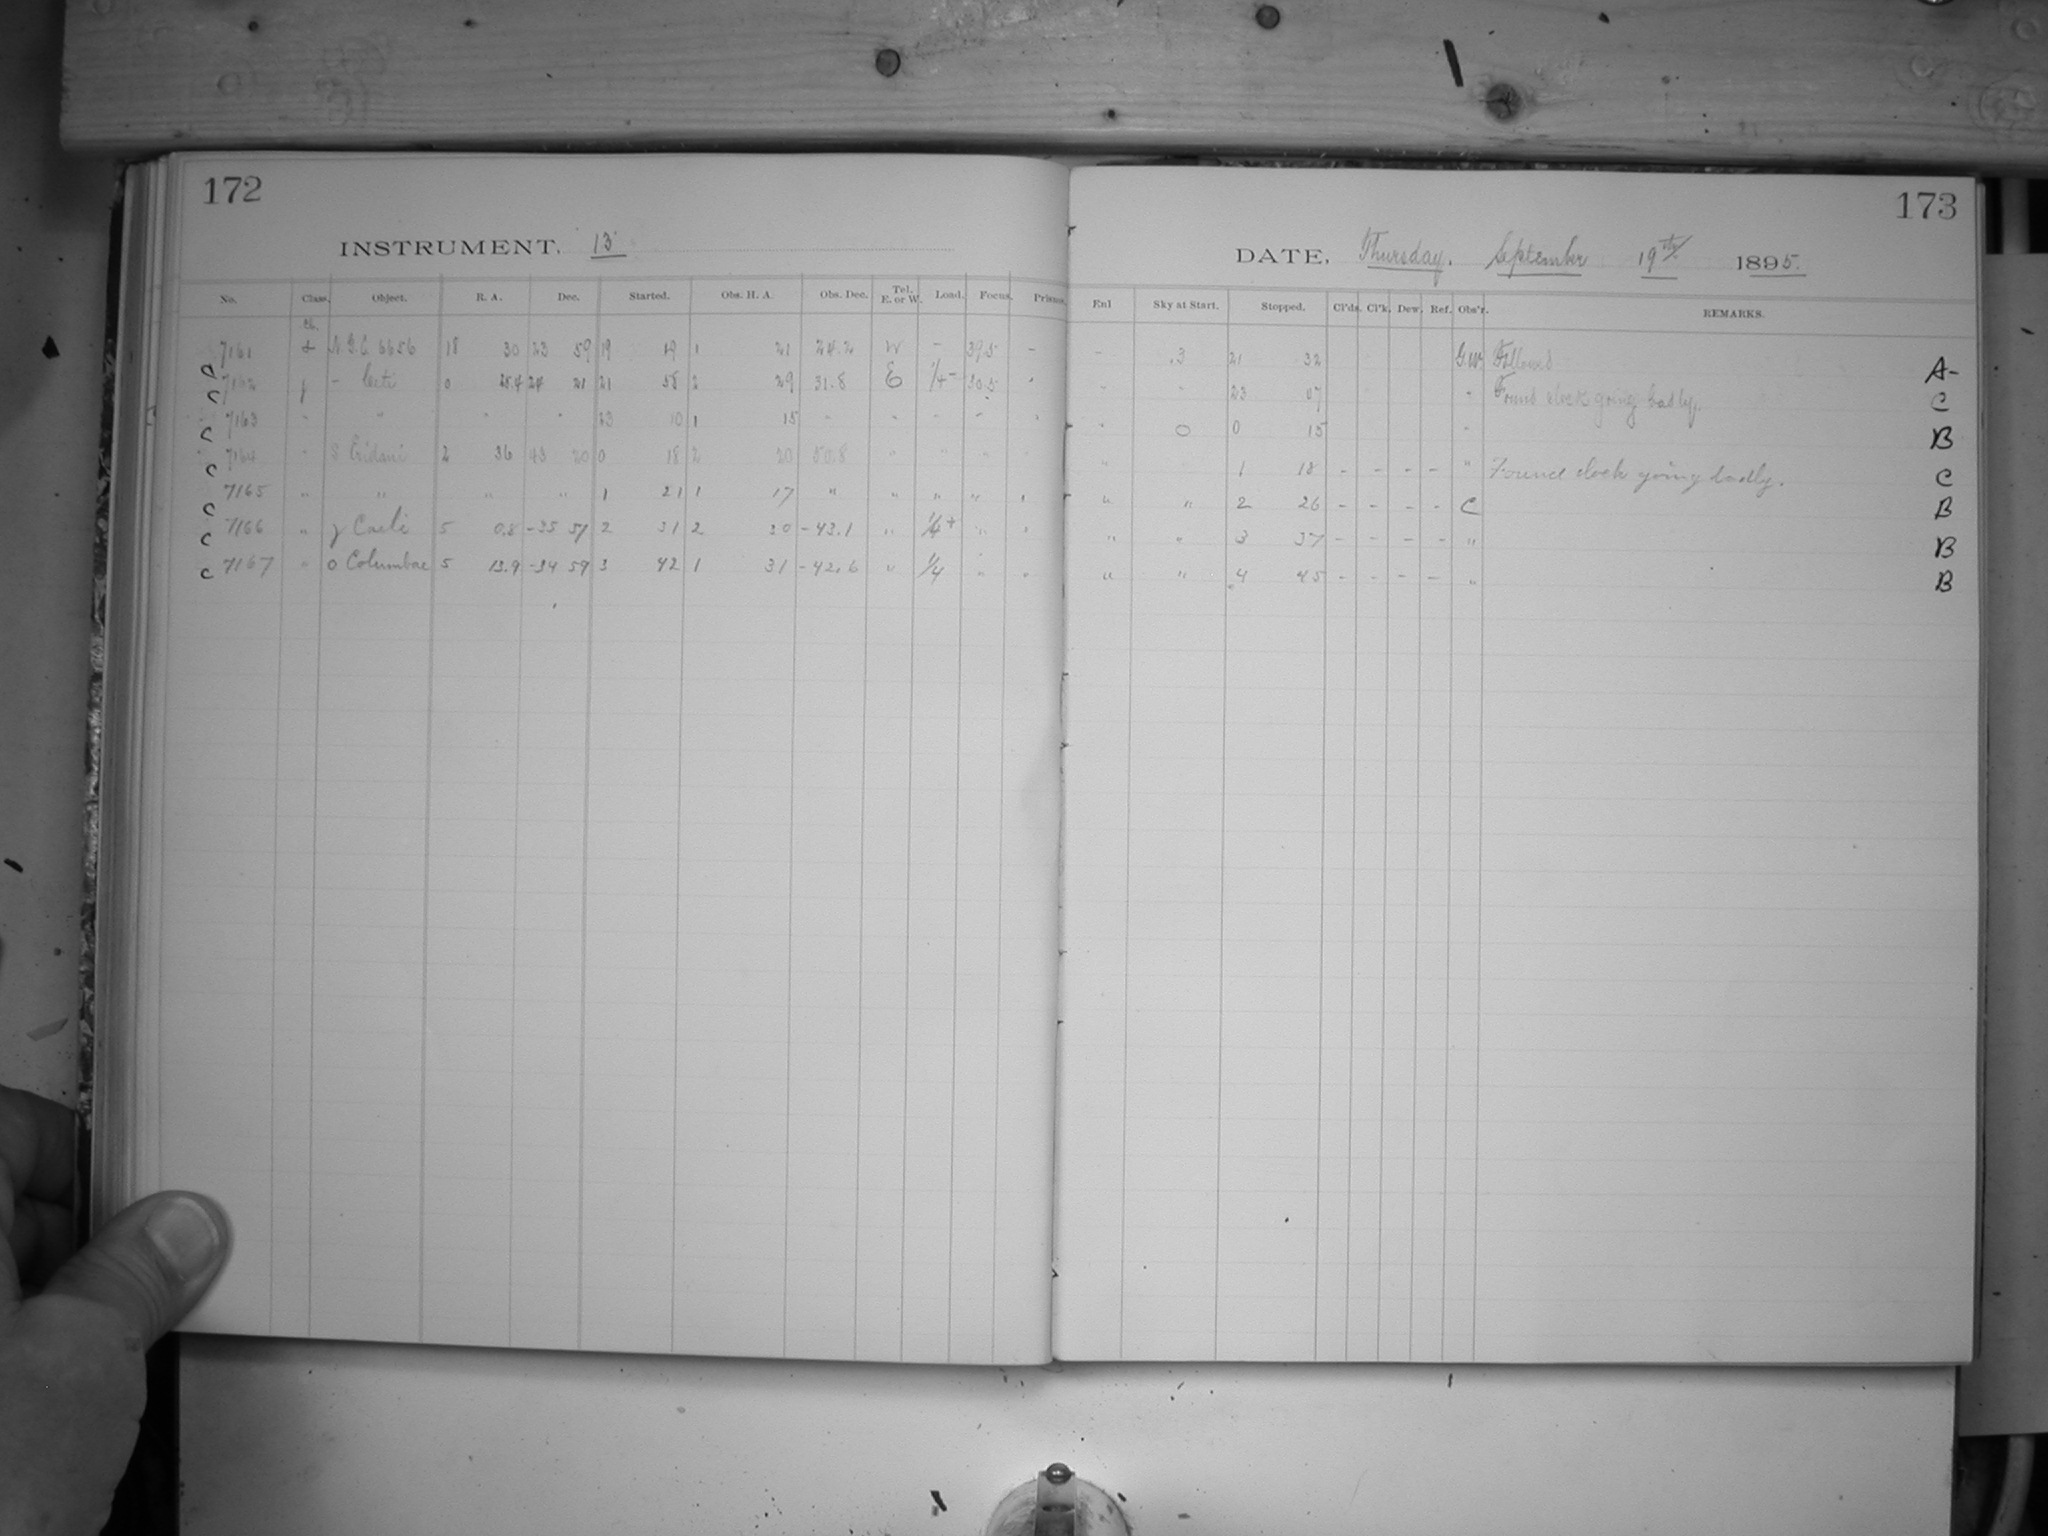 172
INSTRUMENT, 13
No. Class. Object. R. A. Dec. Started. Obs. H. A. Obs. Dec. Tel. E. or W. Load. Focus. Prisms.
7161 N.G.C. 6656 18 30 23 59 19 19 1 21 24.2 W - 39.5 -
C 7162 - Ceti 0 24 21 21 58 2 29 31.8 E 1/4- 30.5
C 7163 " " " 23 10 1 15 " " " "
C 7164 " Eridani 2 36 43 20 0 18 2 20 50.8 " " "
C 7165 " " " " 1 21 1 17 " " " " "
C 7166 " γ Caeli 5 0.8 -35 37 2 31 2 30 -43.1 " 1/4+ " "
C 7167 " o Columbae 5 13.9 -34 59 3 42 1 31 -42.6 " 1/4 " "
173
DATE, Thursday. September 19th 1895.
Enl Sky at Start. Stopped. Cl'ds. Cl'k. Dew. Ref. Obs'r. REMARKS.
- .3 21 32 G.W. Followed A-
" " 23 07 " Found clock going badly. C
" 0 0 15 " B
" 1 18 - - - - " Found clock going badly. C
" " 2 26 - - - - C B
" " 3 37 - - - - " B
" " 4 45 - - - - " B